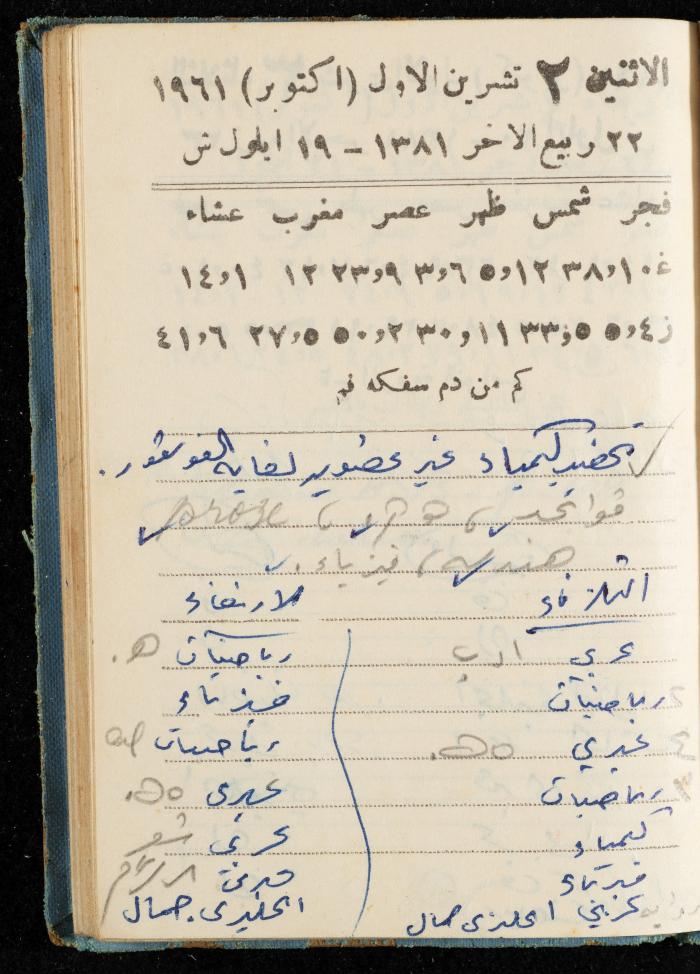 الاثنين ٢ تشرين الاول (اكتوبر) ١٩٦١
٢٢ ربيع الاخر ١٣٨١ - ١٩ ايلول ش
فجر شمس ظهر عصر مغرب عشاء
غ ١٠و ٣٨ ١٢و٥ ٦و٣ ٩و٢٣ ١٢ ١و١٤
ز ٤و٥ ٥و٣٣ ١١و٣٠ ٢و٥٠ ٥و٢٧ ٦و٤١
كم من دم سفكه فم
تحضير كيمياء غير عضوية لغاية الفوسفور.
قواعد prose
هندسة، فيزياء.
الثلاثاء
عربي ادب
رياضيات
عبري
رياضيات
كيمياء
فيزياء
عربي انجليزي جمال
الاربعاء
رياضيات هـ.
فيزياء
رياضيات
عبري
عربي شعر
انجليزي. جمال